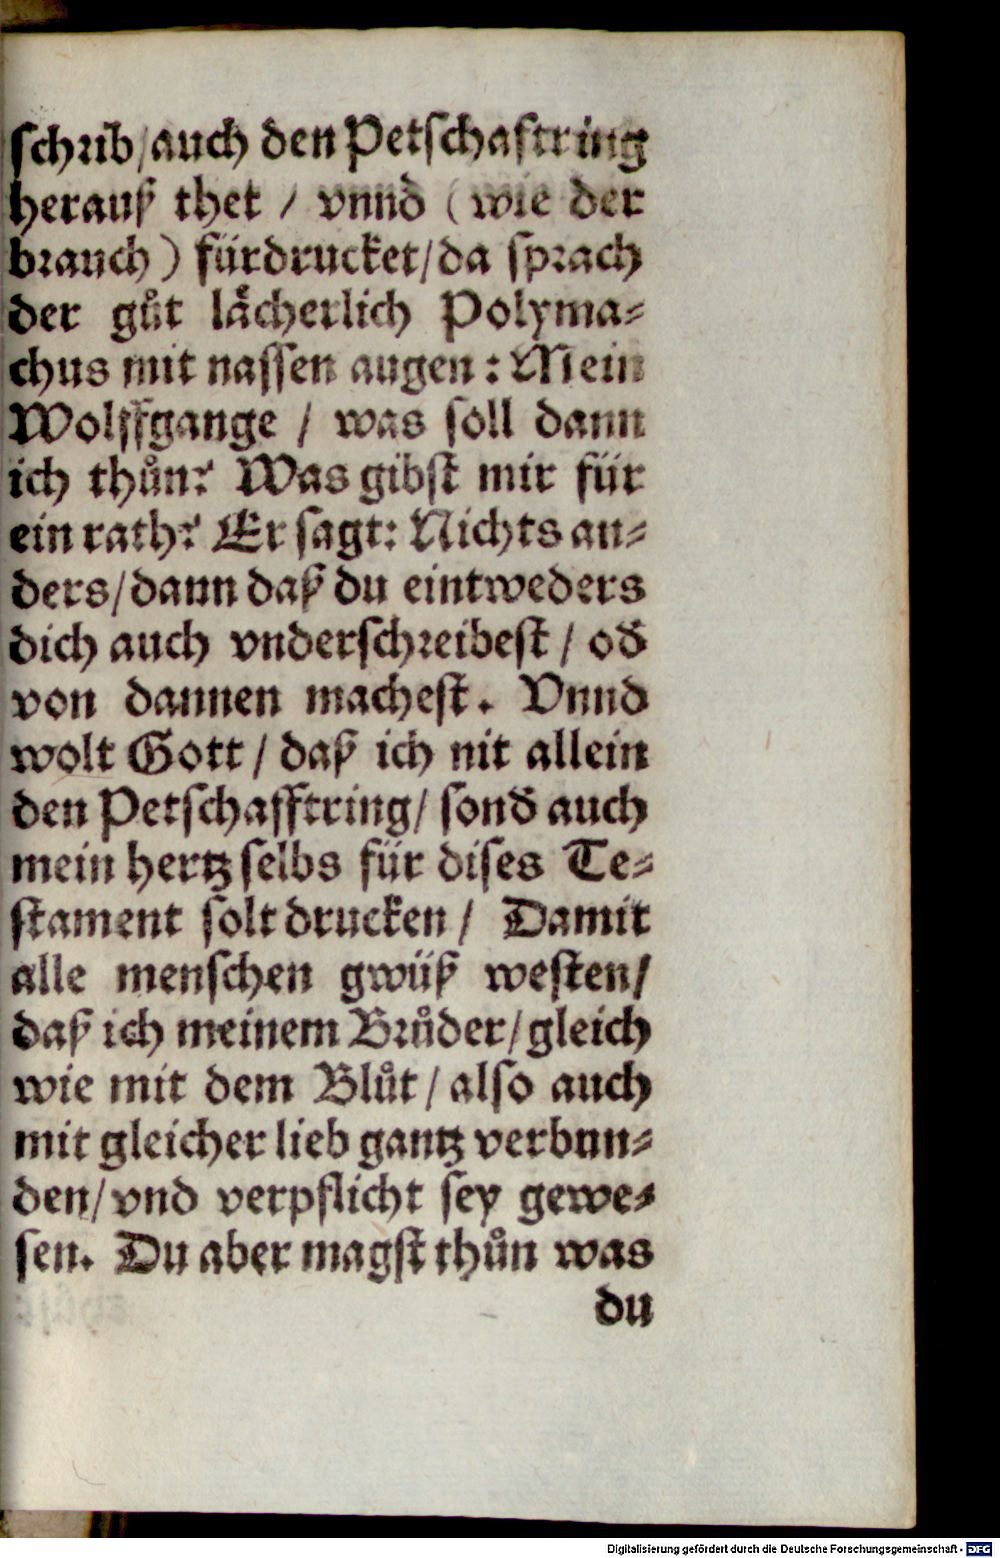 schrib/auch den Petschaftring
herauß thet / vnnd (wie der
brauch) fürdrucket/da sprach
der gůt laͤcherlich Polyma-
chus mit nassen augen: Mein
Wolffgange / was soll dann
ich thůn? Was gibst mir für
ein rath? Er sagt: Nichts an-
ders/dann daß du eintweders
dich auch vnderschreibest / od̄
von dannen machest. Vnnd
wolt Gott / daß ich nit allein
den Petschafftring/ sond̄ auch
mein hertz selbs für dises Te-
stament solt drucken / Damit
alle menschen gwüß westen/
daß ich meinem Brůder/gleich
wie mit dem Blůt / also auch
mit gleicher lieb gantz verbun-
den/vnd verpflicht sey gewe-
sen. Du aber magst thůn was
du
Digitalisierung gefördert durch die Deutsche Forschungsgemeinschaft - DFG